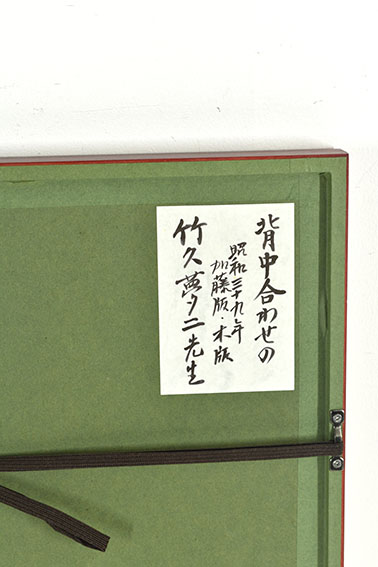 背中合わせの
昭和三十九年
加藤版・木版
竹久夢二先生